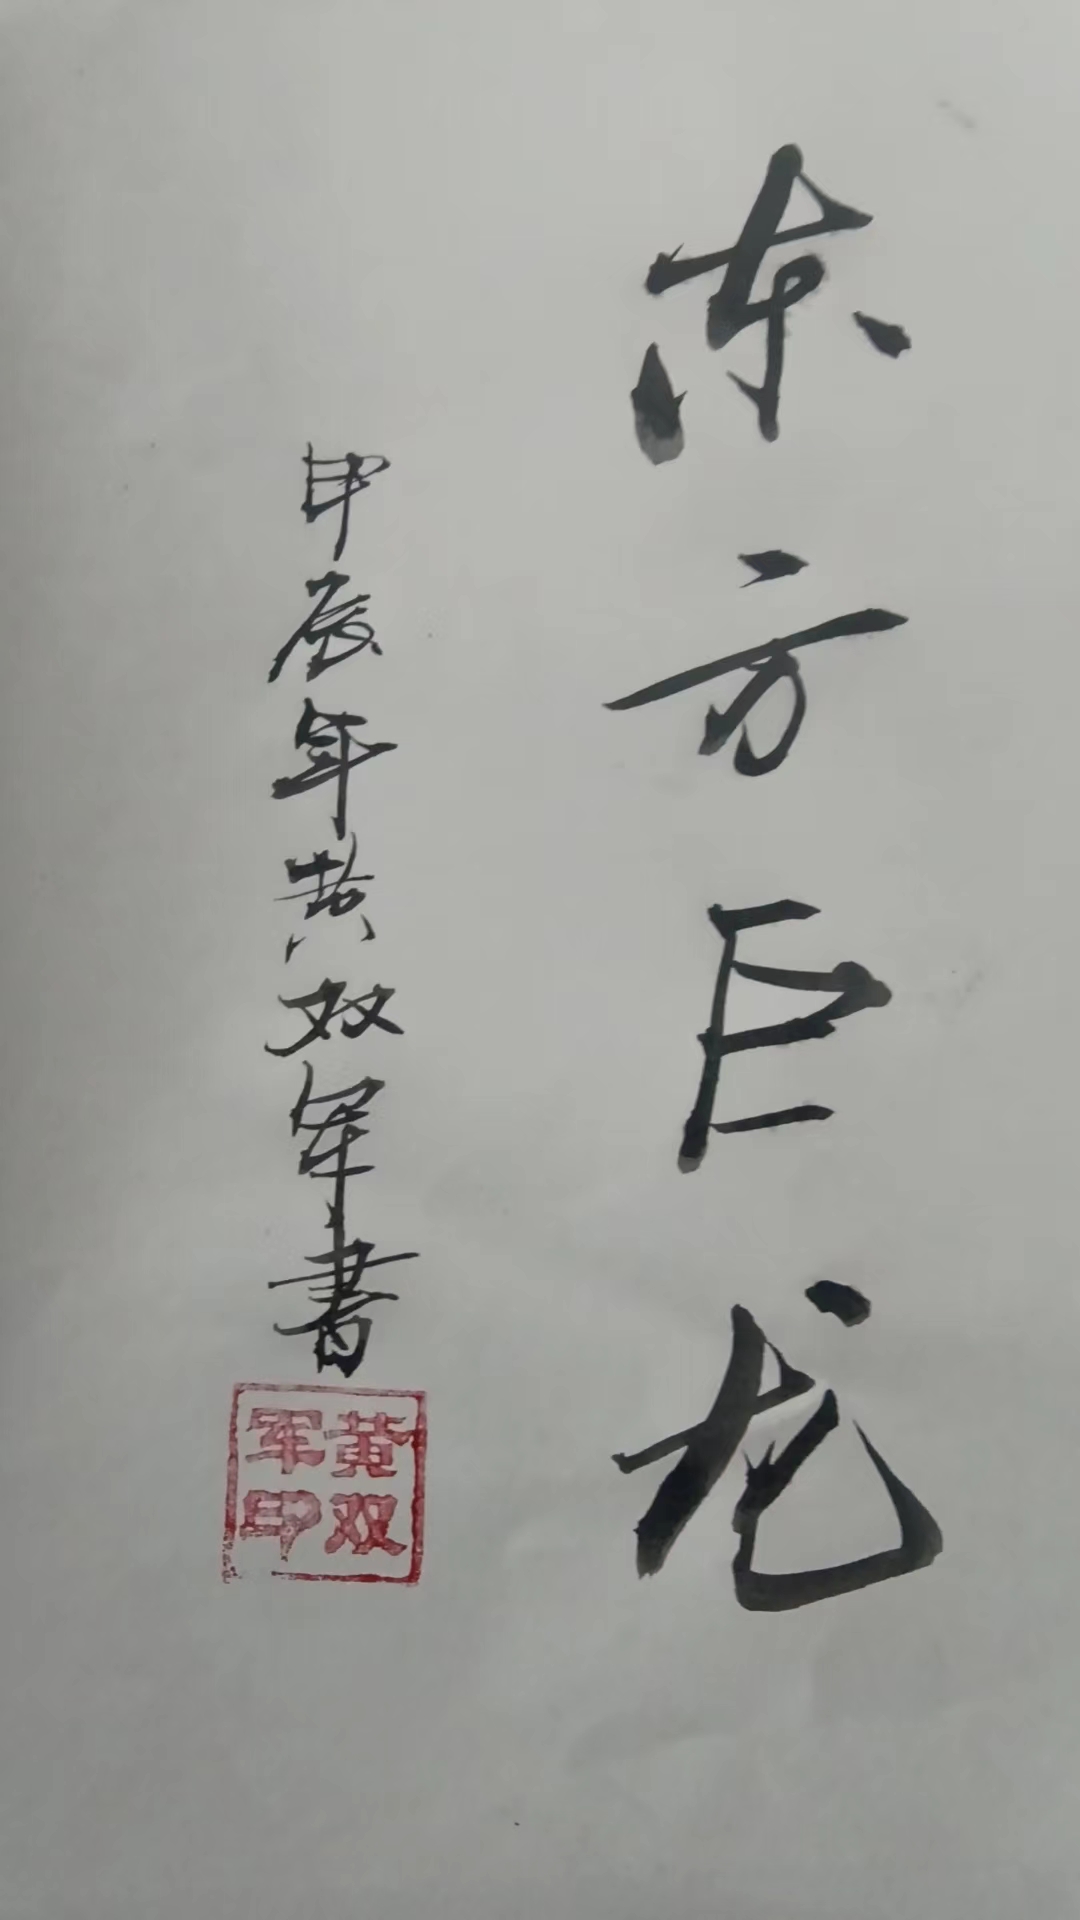 东方巨龙
甲辰年黄双军書
黄双
军印